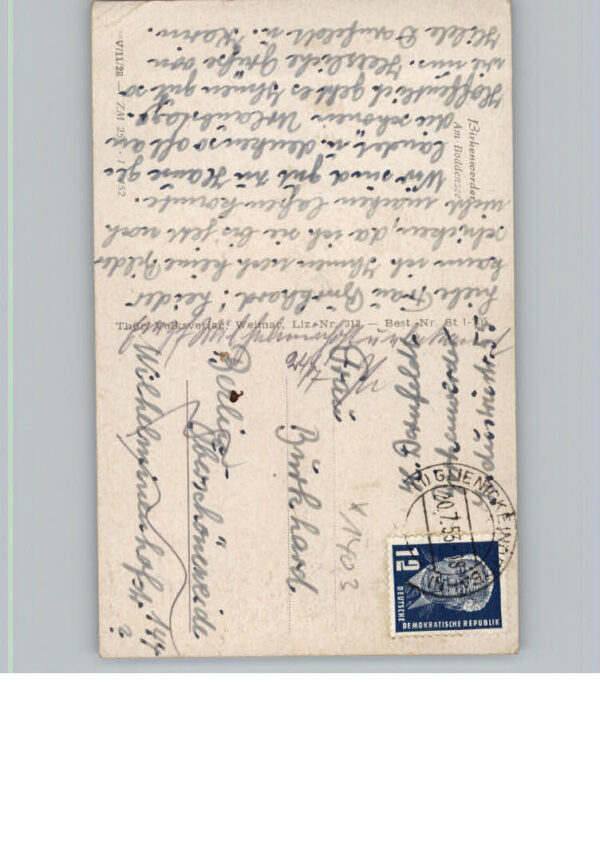 Liebe Frau Bürkhard! Leider
kann ich Ihnen noch keine Bilder
schicken, da ich sie bis jetzt noch
nicht machen lassen konnte.
Wir sind gut zu Hause ge-
landet u. denken so oft an
die schönen Urlaubstage.
Hoffentlich geht es Ihnen gut so
wie uns. Herzliche Grüße von
Hilde Darnfeldt u. Karin.
Birkenwerder
Am Boddensee
V/11/28 — ZM
Thür. Volksverlag, Weimar, Liz.-Nr. 313 — Best.-Nr. St
GLIENICKE
20.7.53
12
DEUTSCHE
DEMOKRATISCHE REPUBLIK
Frau
Bürkhard
Berlin-
Oberschöneweide
Wilhelminenhofstr. 144
X 1403